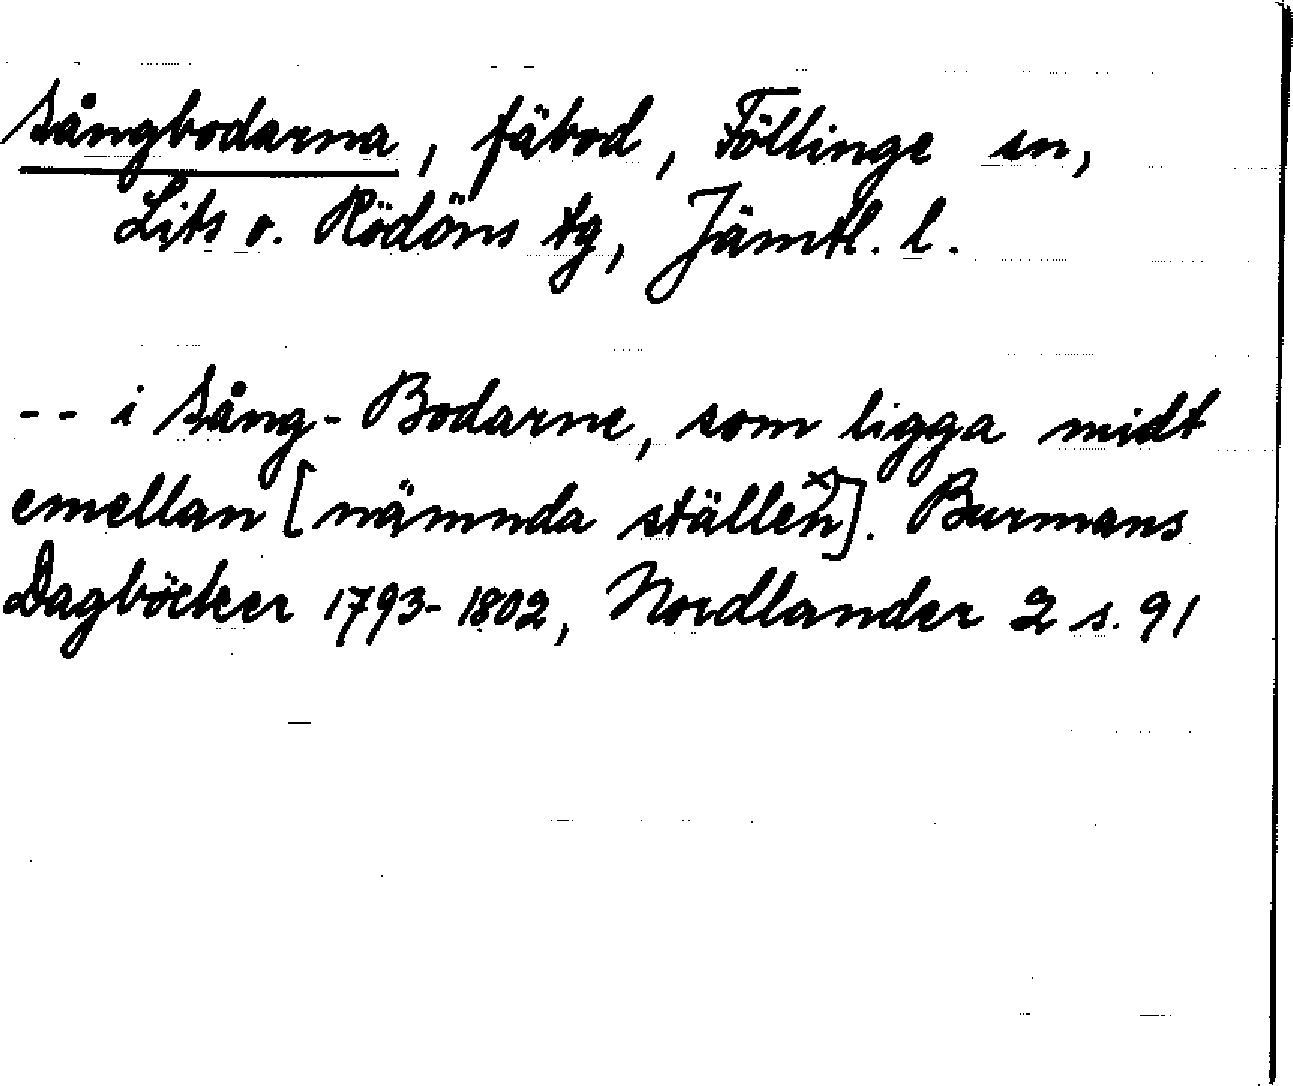 Sångbodarna, fäbod, Föllinge sn,
Lits o. Rödöns tg, Jämtl. l.
-- i Sång-Bodarne, som ligga midt
emellan [nämnda ställen x]. Burmans
Dagböcker 1793-1802, Nordlander 2 s. 91